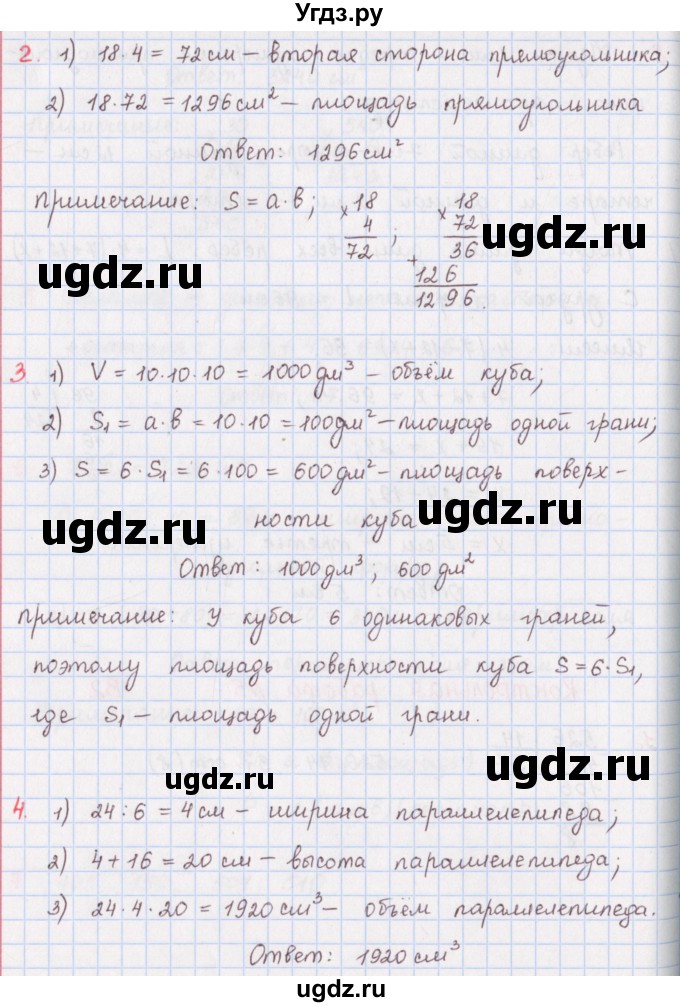 Угдз.ру
2. 1) 18·4 = 72 см – вторая сторона прямоугольника;
2) 18·72 = 1296 см² – площадь прямоугольника
Ответ: 1296 см²
Примечание: S = a·в; ×18 ×18
4 72
72 ; 36
ugdz.ru
ugdz.ru
+ 126
1296.
3. 1) V = 10·10·10 = 1000 дм³ – объём куба;
2) S₁ = a·в = 10·10 = 100 дм² – площадь одной грани;
3) S = 6·S₁ = 6·100 = 600 дм² – площадь поверх-
ности куба
ugdz.ru
ugdz.ru
Ответ: 1000 дм³ ; 600 дм²
Примечание: У куба 6 одинаковых граней,
поэтому площадь поверхности куба S = 6·S₁,
где S₁ – площадь одной грани.
ugdz.ru
ugdz.ru
4. 1) 24 : 6 = 4 см – ширина параллелепипеда;
2) 4 + 16 = 20 см – высота параллелепипеда;
3) 24·4·20 = 1920 см³ – объём параллелепипеда.
Ответ: 1920 см³
ugdz.ru
ugdz.ru